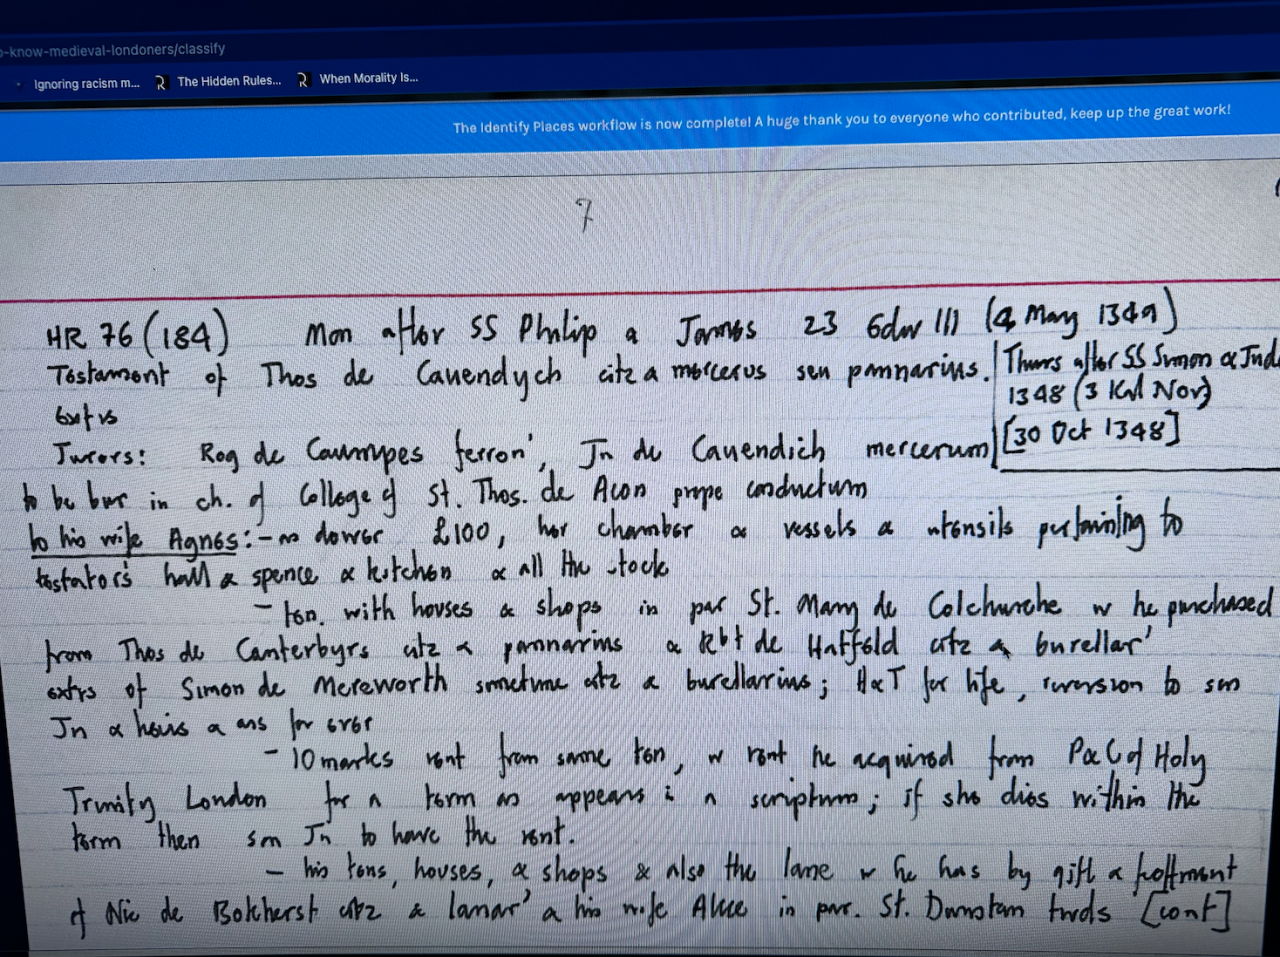 o-know-medieval-londoners/classify
Ignoring racism m... The Hidden Rules... When Morality Is...
The Identify Places workflow is now complete! A huge thank you to everyone who contributed, keep up the great work!
7
HR 76 (184) Mon after SS Philip & James 23 Edw III (4 May 1349)
Testament of Thos de Cauendych citz & mercerus seu pannarius. Thurs after SS Simon & Jude
1348 (3 Kal Nov)
[30 Oct 1348]
Extrs
Jurors: Rog de Caumpes ferron', Jn de Cauendich mercerum
to be bur in ch. of College of St. Thos. de Acon prope conductum
to his wife Agnes:- as dower £100, her chamber & vessels & utensils pertaining to
testator's hall & spence & kitchen & all the stock
- ten. with houses & shops in par St. Mary de Colchurche w he purchased
from Thos de Canterbyrs citz & pannarius & Rbt de Hatfeld citz & burellar'
extrs of Simon de Mereworth sometime citz & burellarius; H&T for life, reversion to son
Jn & heirs & ass for ever
- 10 marks rent from same ten, w rent he acquired from P&C of Holy
Trinity London for a term as appears i a scriptum; if she dies within the
term then son Jn to have the rent.
- his tens, houses, & shops & also the lane w he has by gift & feoffment
of Nic de Bokherst citz & lanar' & his wife Alice in par. St. Dunstan twds [cont]